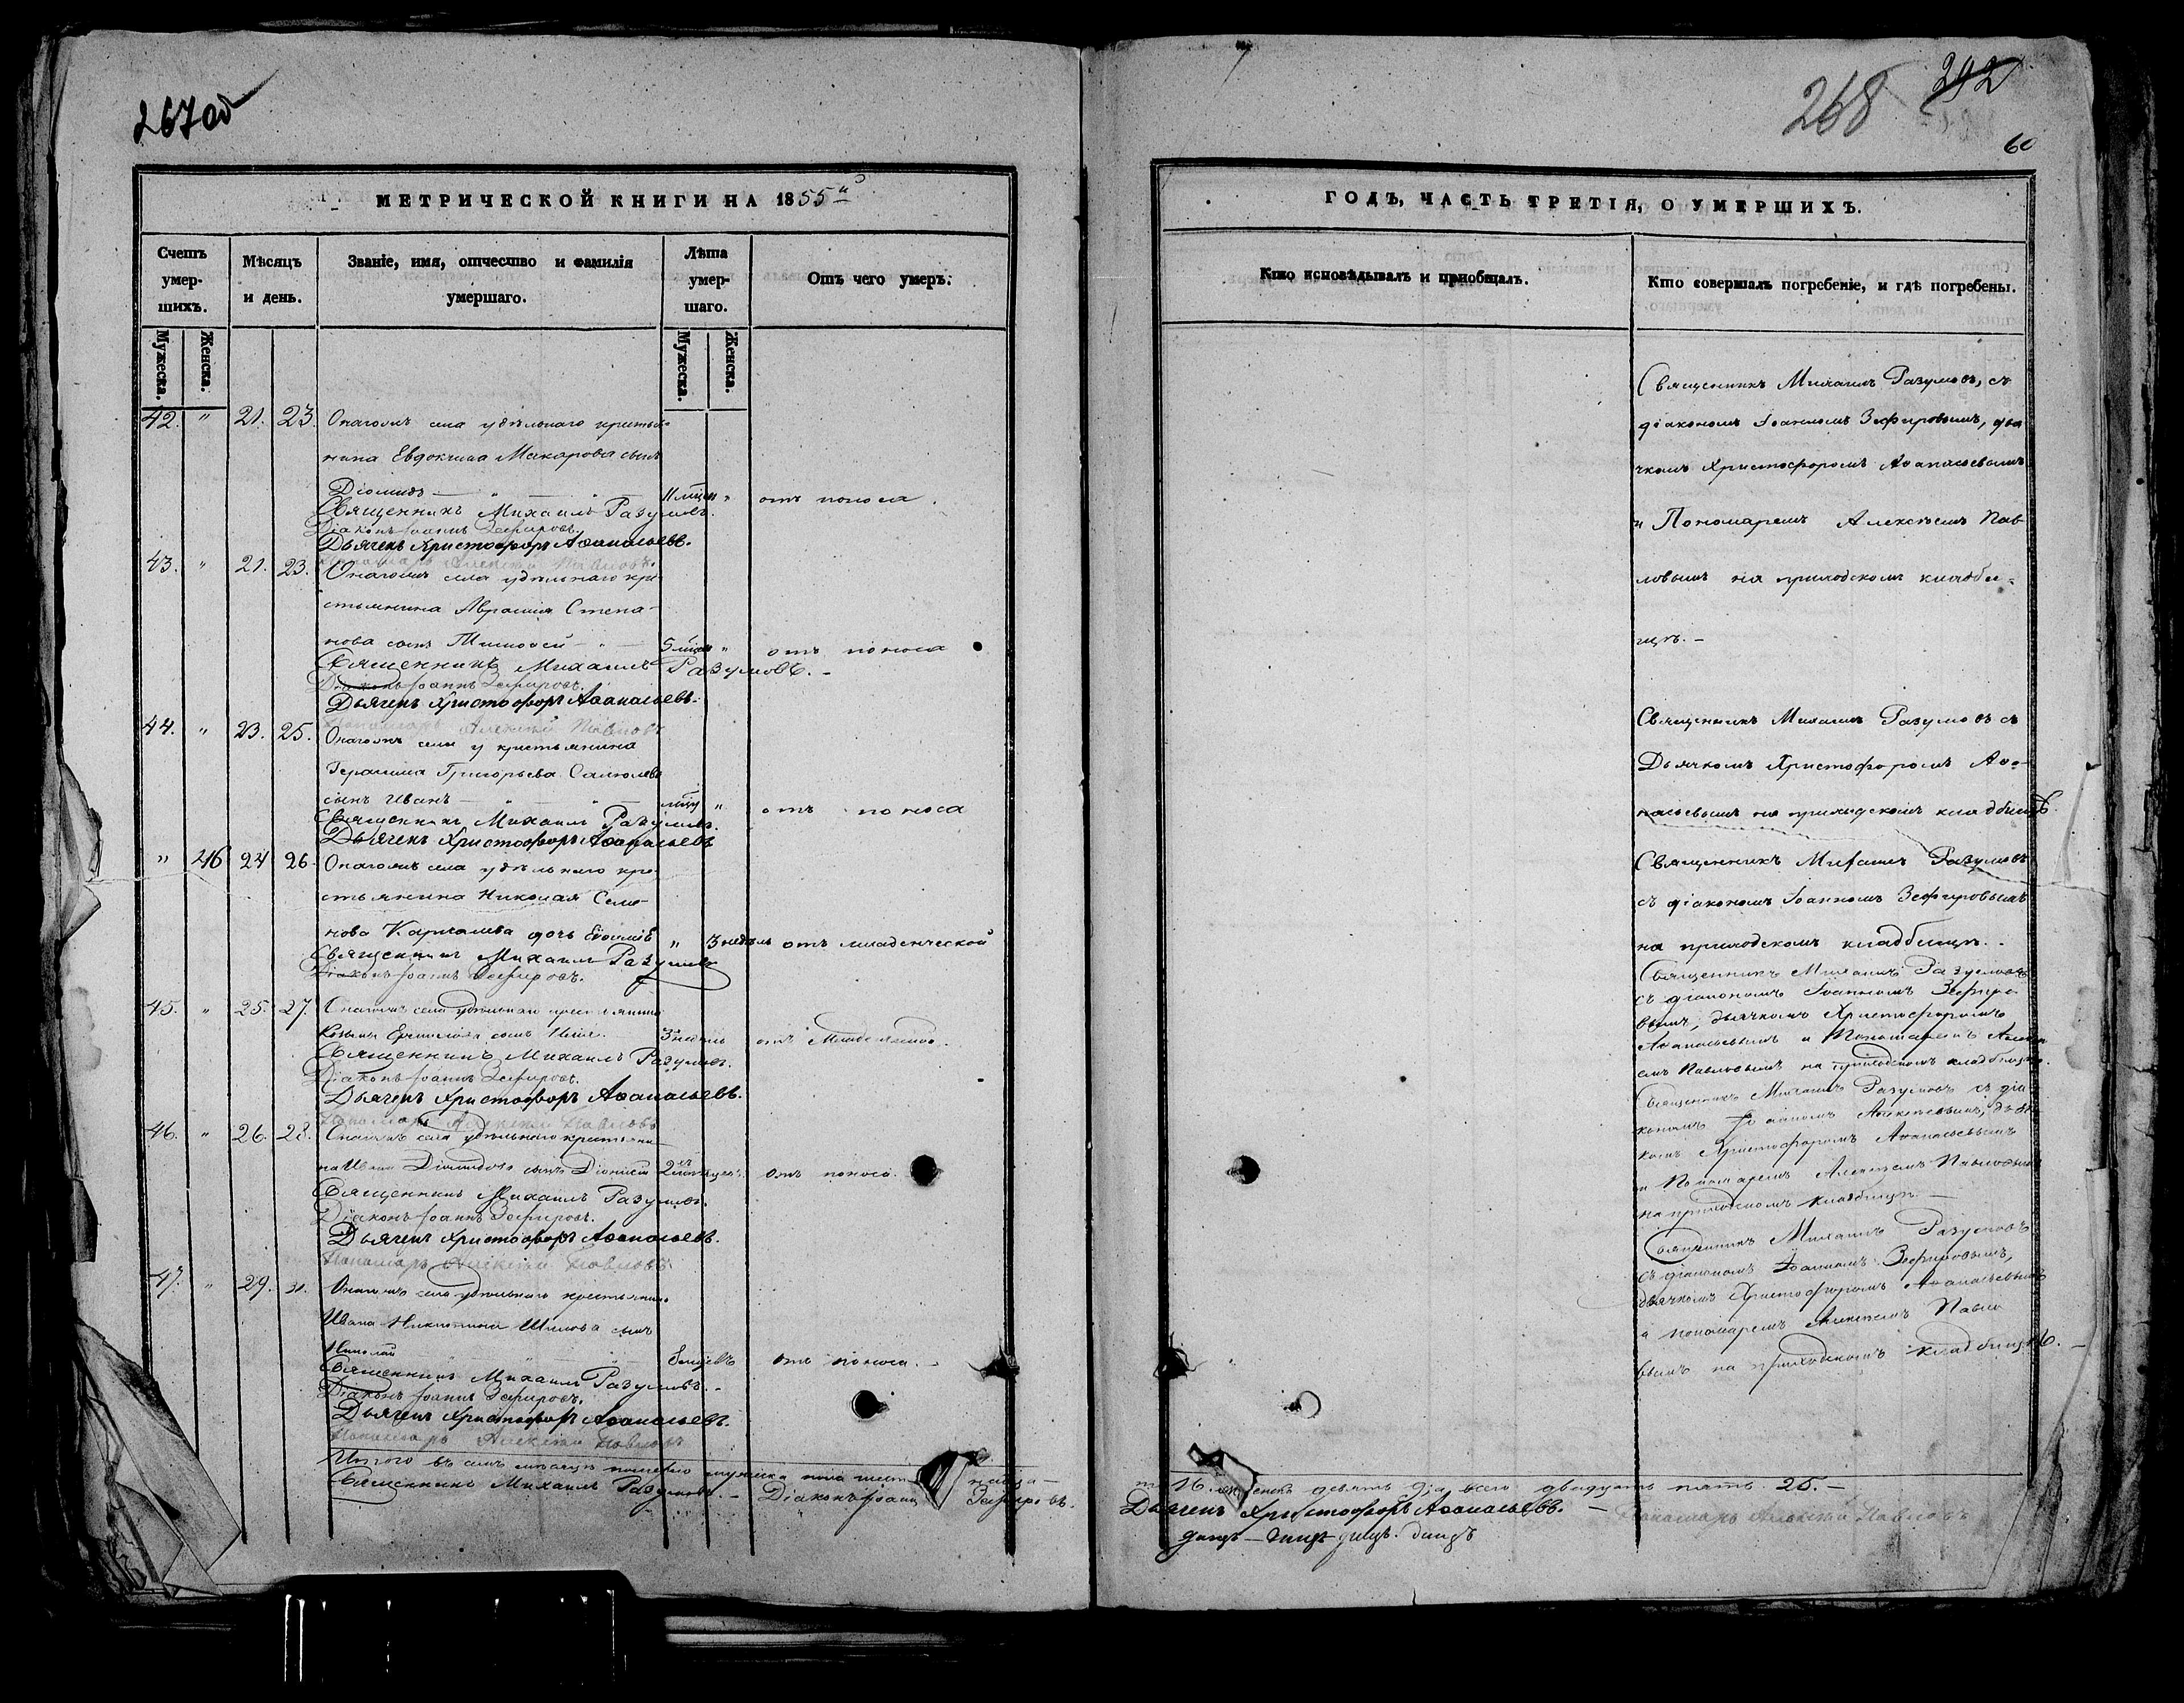 267 об
МЕТРИЧЕСКОЙ КНИГИ НА 1855й
Счетъ умершихъ.
Мѣсяцъ и день.
Званіе, имя, отчество и фамилія умершаго.
Лѣта умершаго.
Отъ чего умеръ.
Мужеска.
Женска.
Мужеска.
Женска.
42. " 21. 23. Онагожъ села удѣльнаго кристья-
нина Евдокима Макарова сынъ
Діомидъ — " — " — 11 мцов " отъ поноса.
Священникъ Михаилъ Разумовъ.
Діаконъ Іоаннъ Зефировъ.
Дьячекъ Христофоръ Аѳанасьевъ.
Пономарь Алексѣй Павловъ.
43. " 21. 23. Онагожъ села удѣльнаго кри-
стьянина Авраамія Степа-
нова сынъ Тимоѳей — " — 5 мцов " отъ поноса
Священникъ Михаилъ Разумовъ. –
Діаконъ Іоаннъ Зефировъ.
Дьячекъ Христофоръ Аѳанасьевъ.
Пономарь Алексѣй Павловъ
44. " 23. 25. Онагожъ села у кристьянина
Герасима Григорьева
сынъ Иванъ — " — " — мцу " отъ поноса
Священникъ Михаилъ Разумовъ.
Дьячекъ Христофоръ Аѳанасьевъ
" 24 26. Онагожъ села удѣльнаго кре-
стьянина Николая Семе-
нова дочь " 3 недѣль отъ младенческой
Священникъ Михаилъ Разумовъ
Діаконъ Іоаннъ Зефировъ.
45. " 25. 27. Онагожъ села удѣльнаго крестьянина
Козьмы сынъ 3 недѣль отъ
Священникъ Михаилъ Разумовъ.
Діаконъ Іоаннъ Зефировъ.
Дьячекъ Христофоръ Аѳанасьевъ.
Пономарь Алексѣй Павловъ
46. " 26. 28. Онагожъ села удѣльнаго крестьяни-
на Ивана сынъ Діонисій отъ поноса.
Священникъ Михаилъ Разумовъ.
Діаконъ Іоаннъ Зефировъ.
Дьячекъ Христофоръ Аѳанасьевъ.
Пономарь Алексѣй Павловъ
47. " 29. 31. Онагожъ села удѣльнаго крестьянина
Ивана Никитина Шилова сынъ
Николай 8 мцевъ отъ поноса. –
Священникъ Михаилъ Разумовъ. –
Діаконъ Іоаннъ Зефировъ.
Дьячекъ Христофоръ Аѳанасьевъ.
Пономарь Алексѣй Павловъ
Итого въ семъ мѣсяцѣ померло мужеска пола шест
Священникъ Михаилъ Разумовъ. – Діаконъ Іоаннъ Зефировъ.
268
292
60
ГОДЪ, ЧАСТЬ ТРЕТІЯ, О УМЕРШИХЪ.
Кто исповѣдывалъ и пріобщалъ.
Кто совершалъ погребеніе, и гдѣ погребены.
Священникъ Михаилъ Разумовъ, съ
діакономъ Іоанномъ Зефировымъ, дья
чкомъ Христофоромъ Аѳанасьевымъ
и Пономаремъ Алексѣемъ Пав-
ловымъ на приходскомъ кладби-
щѣ. –
Священникъ Михаилъ Разумовъ съ
Дьячкомъ Христофоромъ Аѳа-
насьевымъ на приходскомъ кладбищѣ.
Священникъ Михаилъ Разумовъ
съ діакономъ Іоанномъ Зефировымъ
на приходскомъ кладбищѣ.
Священникъ Михаилъ Разумовъ
съ діакономъ Іоанномъ Зефиро-
вымъ, дьячкомъ Христофоромъ
Аѳанасьевымъ и Пономаремъ Алексѣ
емъ Павловымъ на приходскомъ кладбищѣ.
Священникъ Михаилъ Разумовъ съ діа-
кономъ Іоанномъ Алексѣевымъ, дьяч
комъ Христофоромъ Аѳанасьевымъ
и Пономаремъ Алексѣемъ Павловымъ
на приходскомъ кладбищѣ. –
Священникъ Михаилъ Разумовъ
съ діакономъ Іоанномъ Зефировымъ,
дьячкомъ Христофоромъ Аѳанасьевымъ
и пономаремъ Алексѣемъ Павло
вымъ на приходскомъ кладбищѣ. –
16. женска девять всего двадцать пять 25. –
Дьячекъ Христофоръ Аѳанасьевъ. –
Пономарь Алексѣй Павловъ